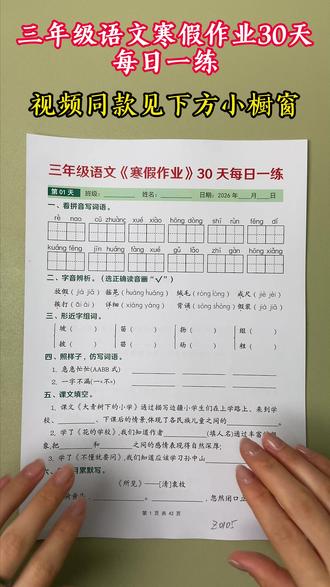 三年级语文寒假作业30天
每日一练
视频同款见下方小橱窗
三年级语文《寒假作业》30 天每日一练
第 01 天 班级: 姓名: 日期: 2026 年 月 日
一、看拼音写词语。
rè nao cū zhuàng xué xiào hóng dòng shī rùn fēng dí
kuáng fēng jīn huáng fàng xué gǔ lǎo zhì gān hòng shān
二、字音辨析。(选正确读音画“√”)
放假(jià jiǎ) 摇晃(huàng huǎng) 绒毛(róng lóng) 戒尺(jiè jèi)
挨打(āi ái) 详细(xiáng yáng) 背诵(sòng shòng) 假装(jiǎ jià)
三、形近字组词。
坡( ) 笛( ) 扬( ) 组( )
披( ) 苗( ) 场( ) 粗( )
四、照样子,仿写词语。
1. 急急忙忙(AABB 式)
2. 一字不漏(一×不×)
五、课文填空。
1. 课文《大青树下的小学》通过描写边疆小学生们在上学路上、来到学
校、 、下课后的情景,体现了各民族儿童之间的
2. 学了《花的学校》,我们知道作者 (填人名)通过丰富的
象,把 和 之间的感情表现得自然深厚;
3. 学了《不懂就要问》,我们知道应该学习孙中山
六、 日累默写。
《所见》——[清]袁枚
, 忽然闭口立
第 1 页 共 42 页